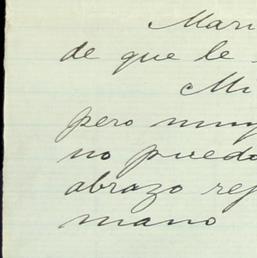 Mari
de que le
Mi
pero muy
no puedo
abrazo ref
mano